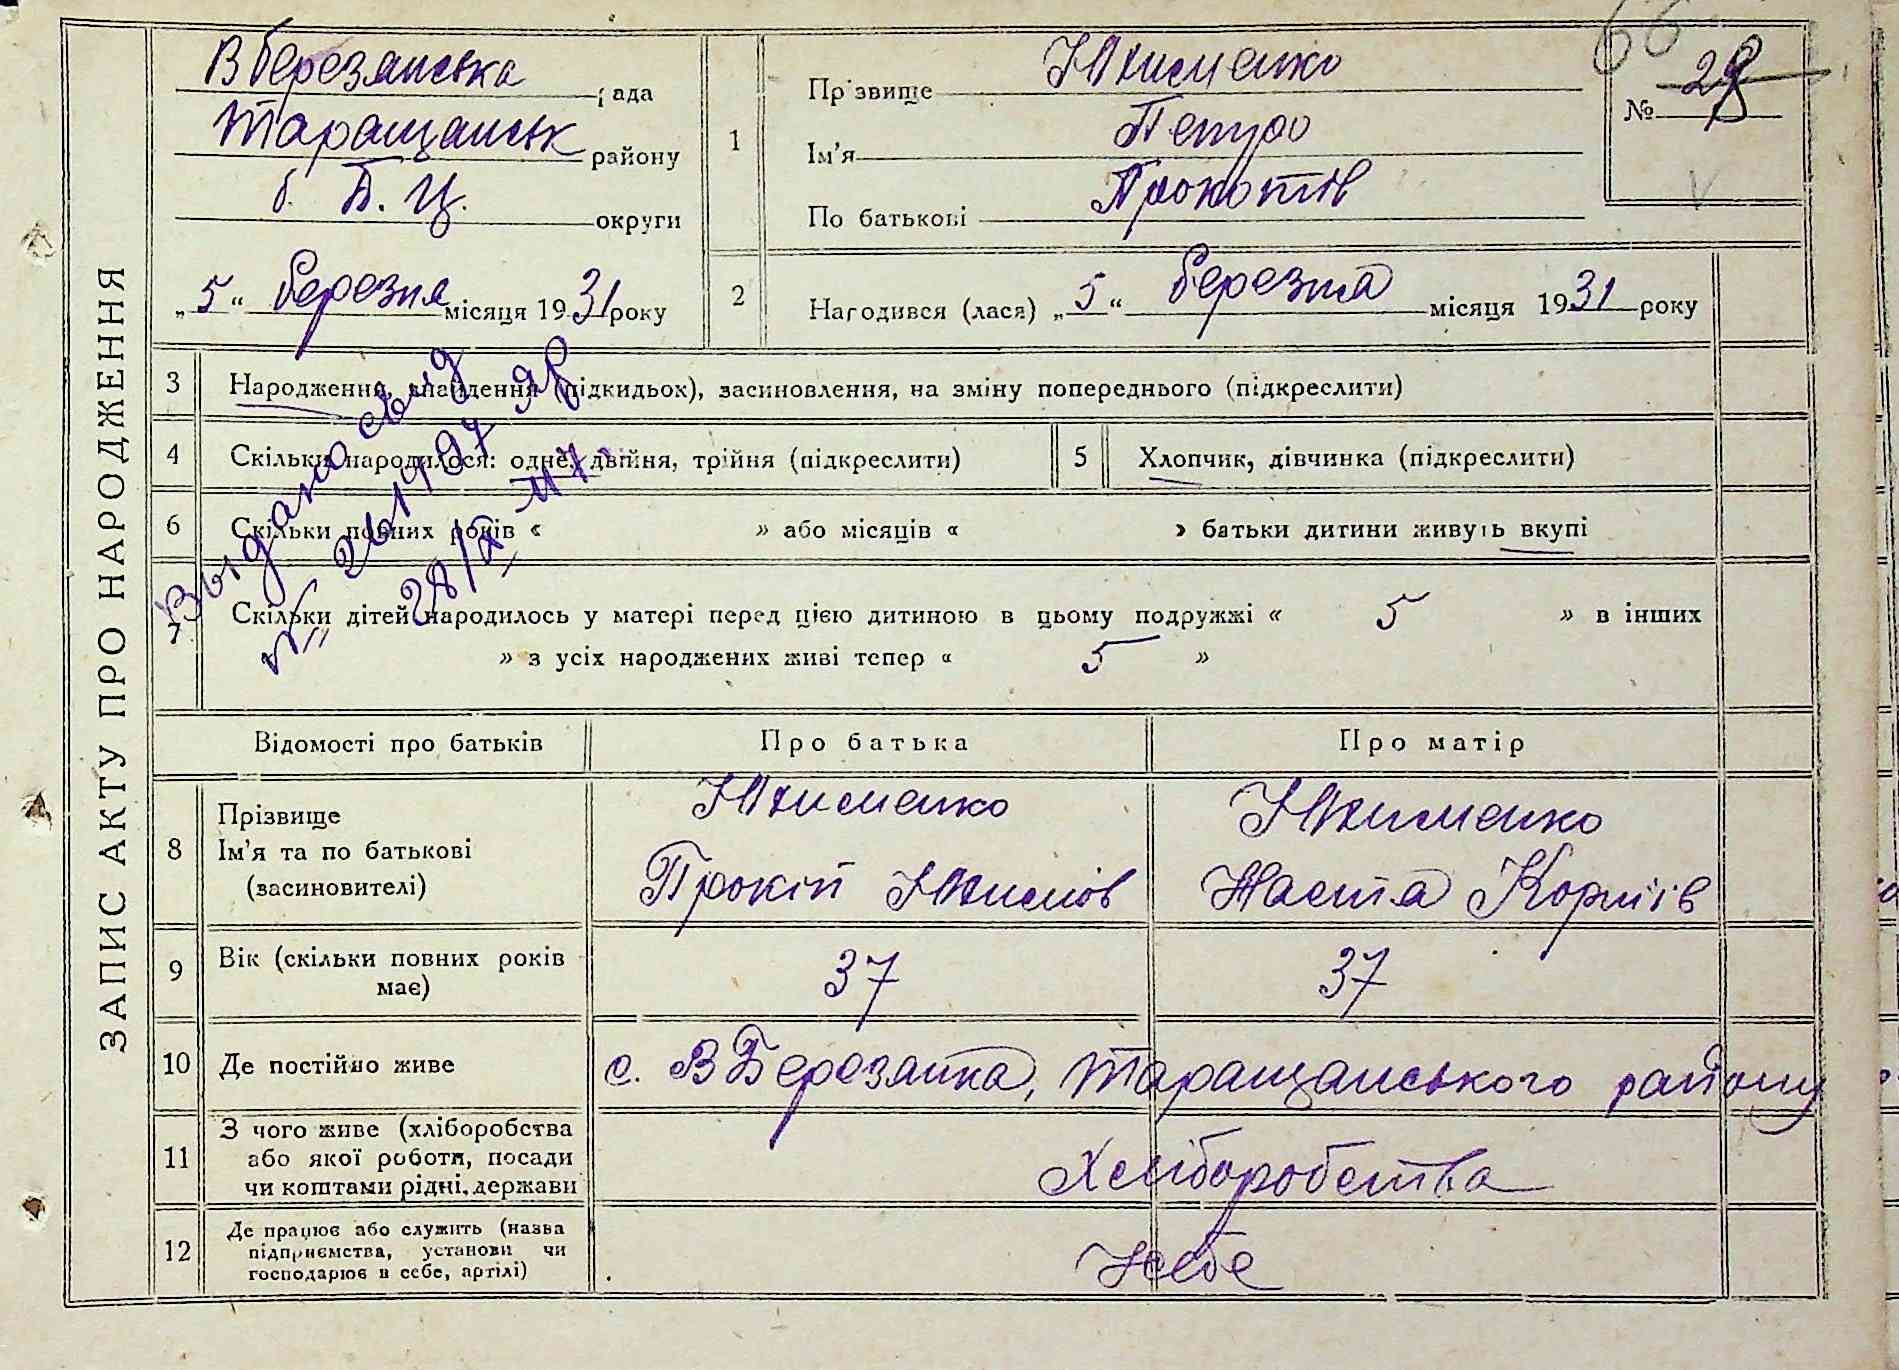 ЗАПИС АКТУ ПРО НАРОДЖЕННЯ
ВБерезянська рада
Таращанськ району
б. Б. Ц. округи
„5“ березня місяця 1931 року
1
Прізвище Юхименко
Ім'я Петро
По батькові Прокопів
№ 28
66
2
Народився (лася) „5“ березня місяця 1931 року
3 Народження, знайдення (підкидьох), засиновлення, на зміну попереднього (підкреслити)
4 Скільки народилося: одне, двійня, трійня (підкреслити)
5 Хлопчик, дівчинка (підкреслити)
6 Скільки повних років « » або місяців « » батьки дитини живуть вкупі
7 Скільки дітей народилось у матері перед цією дитиною в цьому подружжі « 5 » в інших
» з усіх народжених живі тепер « 5 »
Выдано свид
№ 261497
28/IX 117
Відомості про батьків Про батька Про матір
8 Прізвище
Ім'я та по батькові
(засиновителі)
Юхименко
Прокіп Юхимів
Юхименко
Настя Корніїв
9 Вік (скільки повних років має)
37
37
10 Де постійно живе
с. ВБерезянка, Таращанського району
11 З чого живе (хліборобства
або якої роботи, посади
чи коштами рідні, держави
Хліборобства
12 Де працює або служить (назва
підприємства, установи чи
господарює в себе, артілі)
У себе